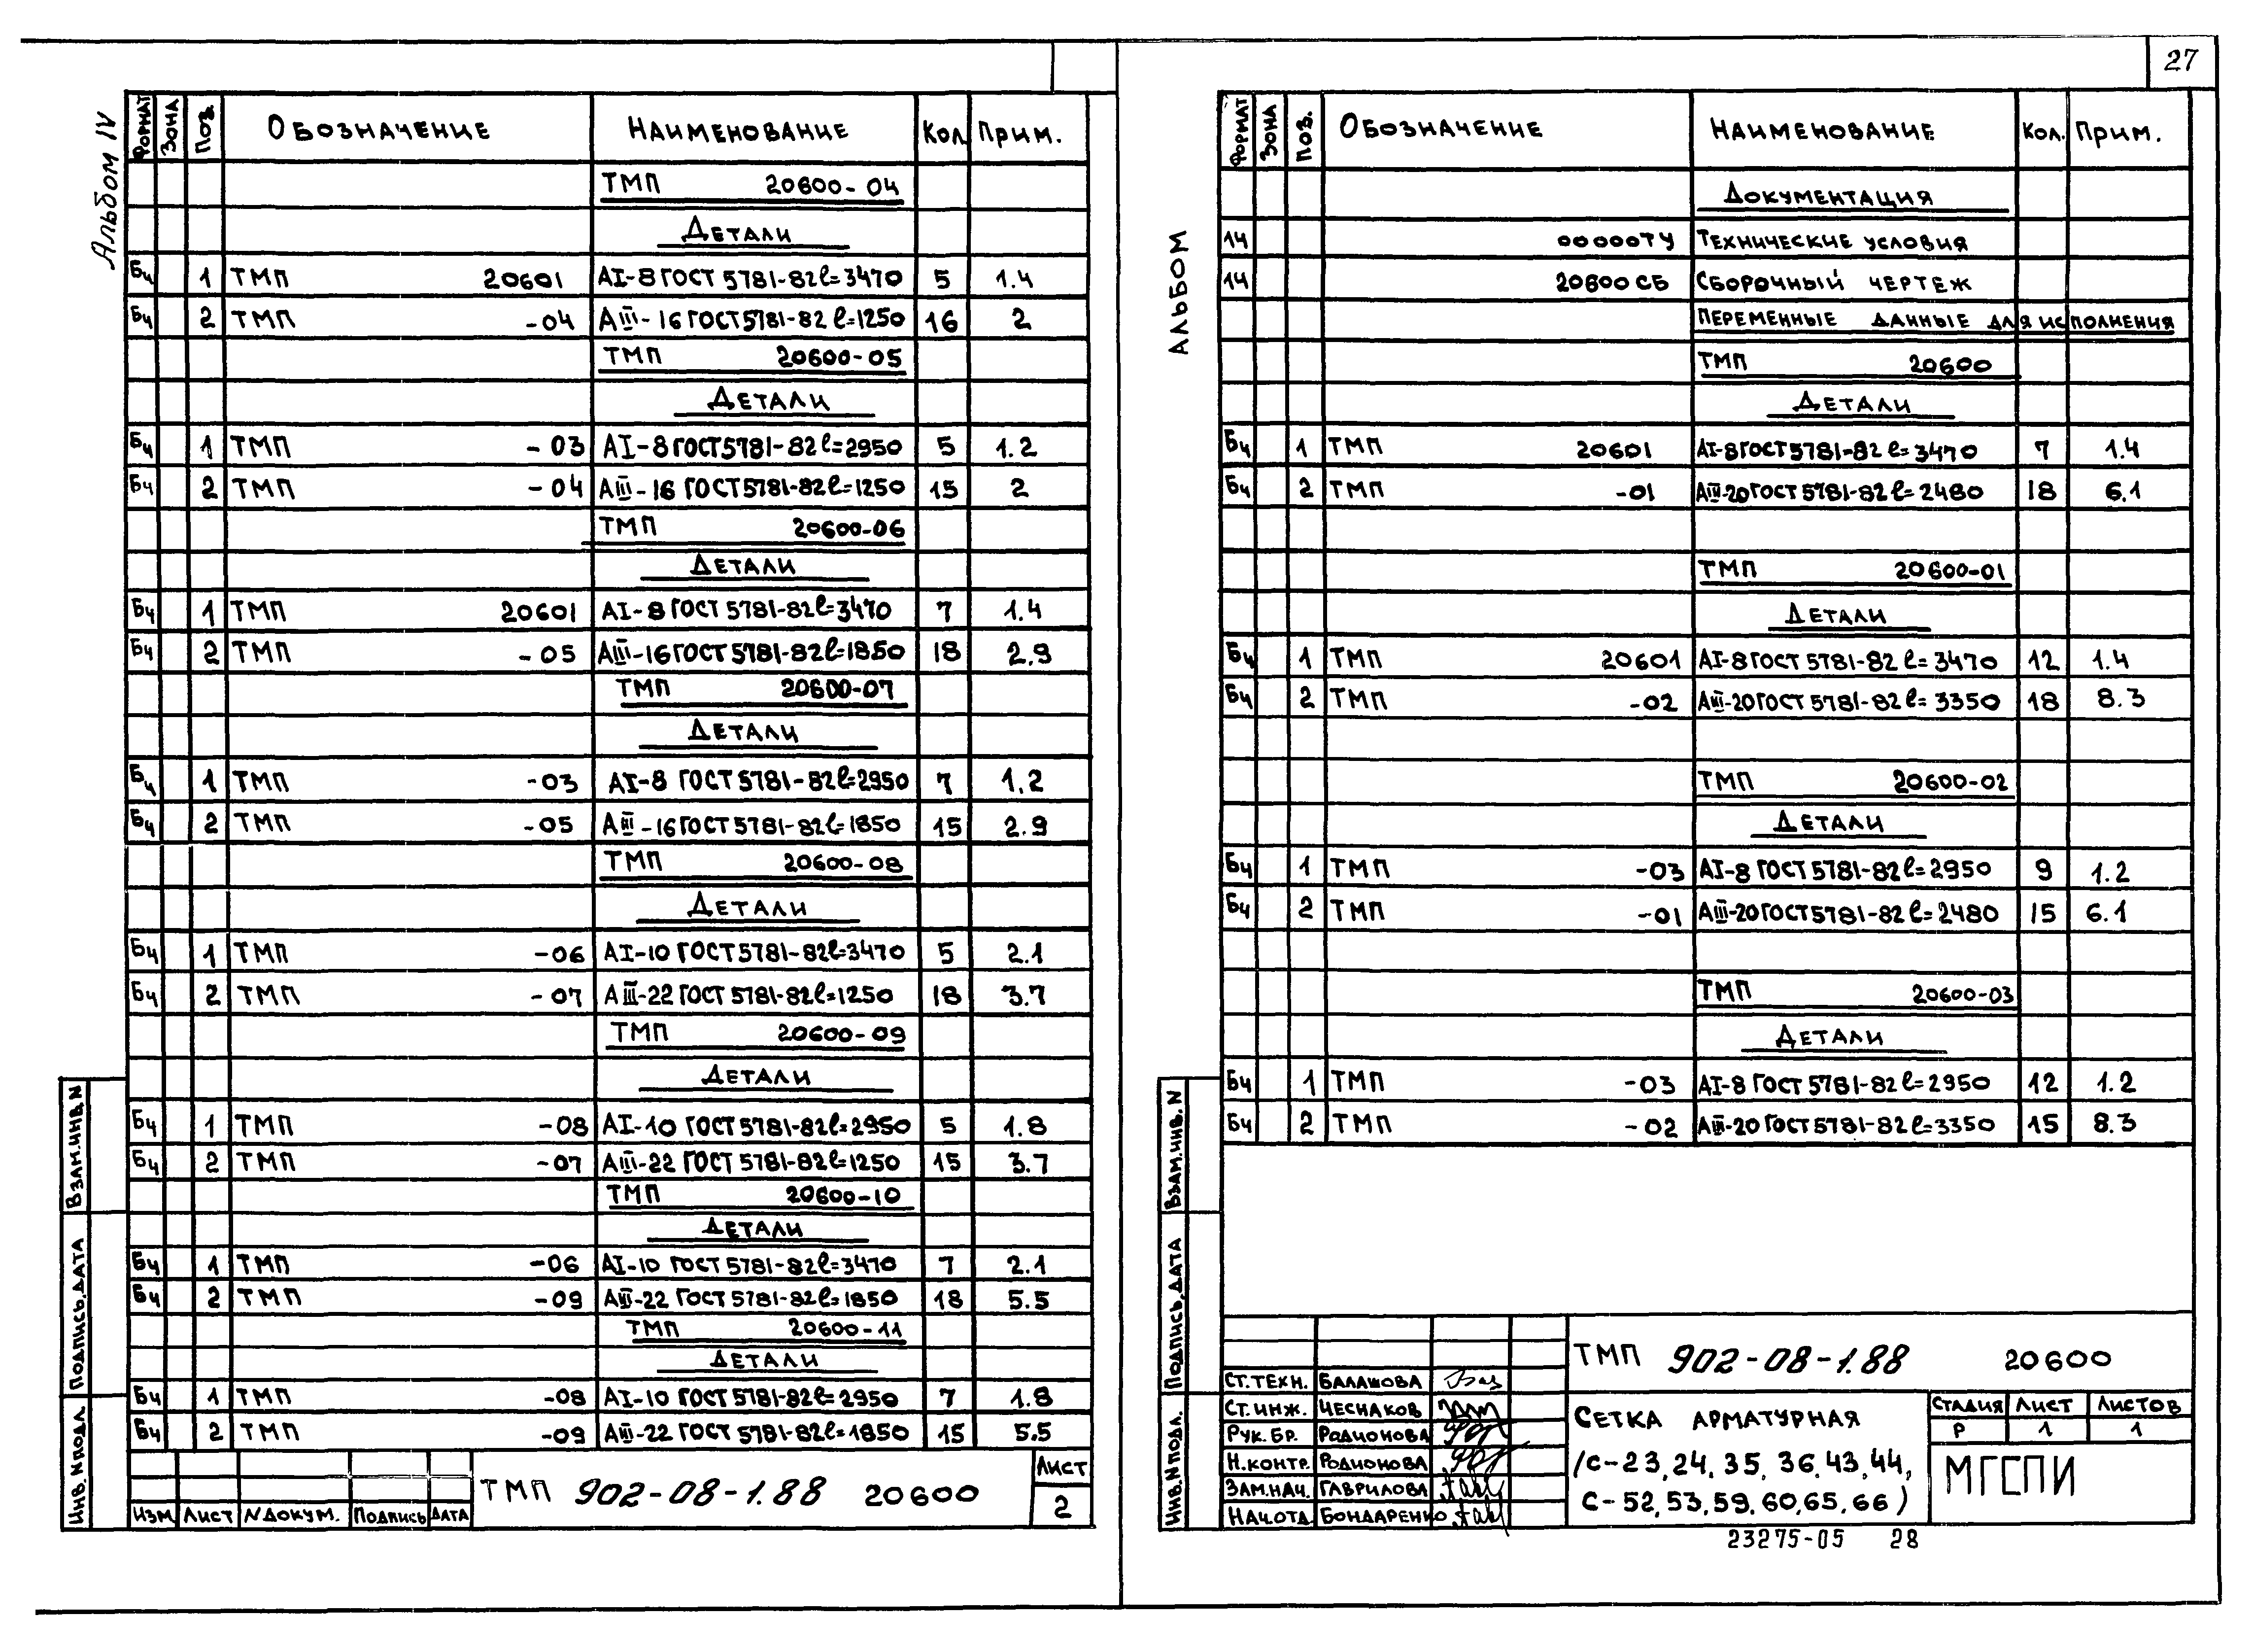 27
Альбом IV
Формат Зона Поз. Обозначение Наименование Кол Прим.
ТМП 20600-04
Детали
Бч 1 ТМП 20601 АI-8 ГОСТ 5781-82 ℓ=3470 5 1.4
Бч 2 ТМП -04 АIII-16 ГОСТ 5781-82 ℓ=1250 16 2
ТМП 20600-05
Детали
Бч 1 ТМП -03 АI-8 ГОСТ 5781-82 ℓ=2950 5 1.2
Бч 2 ТМП -04 АIII-16 ГОСТ 5781-82 ℓ=1250 15 2
ТМП 20600-06
Детали
Бч 1 ТМП 20601 АI-8 ГОСТ 5781-82 ℓ=3470 7 1.4
Бч 2 ТМП -05 АIII-16 ГОСТ 5781-82 ℓ=1850 18 2.9
ТМП 20600-07
Детали
Бч 1 ТМП -03 АI-8 ГОСТ 5781-82 ℓ=2950 7 1.2
Бч 2 ТМП -05 АIII-16 ГОСТ 5781-82 ℓ=1850 15 2.9
ТМП 20600-08
Детали
Бч 1 ТМП -06 АI-10 ГОСТ 5781-82 ℓ=3470 5 2.1
Бч 2 ТМП -07 АIII-22 ГОСТ 5781-82 ℓ=1250 18 3.7
ТМП 20600-09
Детали
Бч 1 ТМП -08 АI-10 ГОСТ 5781-82 ℓ=2950 5 1.8
Бч 2 ТМП -07 АIII-22 ГОСТ 5781-82 ℓ=1250 15 3.7
ТМП 20600-10
Детали
Бч 1 ТМП -06 АI-10 ГОСТ 5781-82 ℓ=3470 7 2.1
Бч 2 ТМП -09 АIII-22 ГОСТ 5781-82 ℓ=1850 18 5.5
ТМП 20600-11
Детали
Бч 1 ТМП -08 АI-10 ГОСТ 5781-82 ℓ=2950 7 1.8
Бч 2 ТМП -09 АIII-22 ГОСТ 5781-82 ℓ=1850 15 5.5
Взам.инв.N
Подпись.дата
Инв.Nподл.
Изм Лист Nдокум. Подпись Дата
ТМП 902-08-1.88 20600
Лист
2
Альбом
Формат Зона Поз. Обозначение Наименование Кол. Прим.
Документация
14 00000ТУ Технические условия
14 20600 СБ Сборочный чертеж
Переменные данные для исполнения
ТМП 20600
Детали
Бч 1 ТМП 20601 АI-8 ГОСТ 5781-82 ℓ=3470 7 1.4
Бч 2 ТМП -01 АIII-20 ГОСТ 5781-82 ℓ=2480 18 6.1
ТМП 20600-01
Детали
Бч 1 ТМП 20601 АI-8 ГОСТ 5781-82 ℓ=3470 12 1.4
Бч 2 ТМП -02 АIII-20 ГОСТ 5781-82 ℓ=3350 18 8.3
ТМП 20600-02
Детали
Бч 1 ТМП -03 АI-8 ГОСТ 5781-82 ℓ=2950 9 1.2
Бч 2 ТМП -01 АIII-20 ГОСТ 5781-82 ℓ=2480 15 6.1
ТМП 20600-03
Детали
Бч 1 ТМП -03 АI-8 ГОСТ 5781-82 ℓ=2950 12 1.2
Бч 2 ТМП -02 АIII-20 ГОСТ 5781-82 ℓ=3350 15 8.3
Взам.инв.N
Подпись.дата
Инв.Nподл.
ТМП 902-08-1.88 20600
Ст.техн. Балашова
Ст.инж. Чеснаков
Рук.бр. Радионова
Н.контр. Родионова
Зам.нач. Гаврилова
Нач.отд. Бондаренко
Сетка арматурная
/С-23,24,35,36,43,44,
С-52,53,59,60,65,66)
Стадия Лист Листов
Р 1 1
МГСПИ
23275-05 28